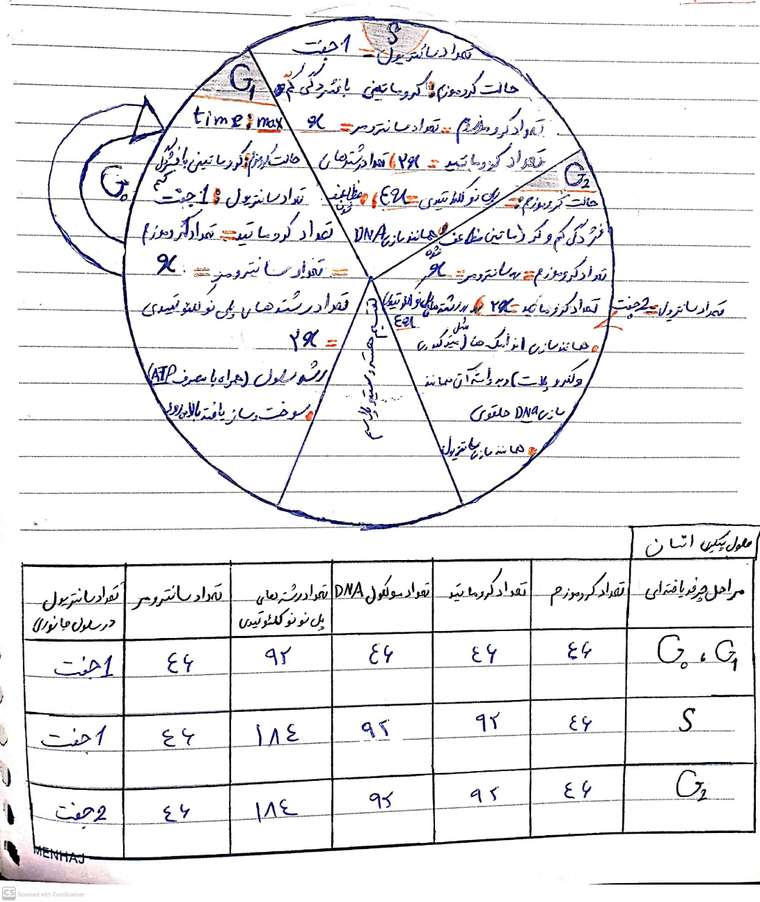 S
تعداد سانتریول = 1 جفت
حالت کروموزوم: کروماتینی با فشردگی کم
تعداد کروموزوم = تعداد سانترومر = x
تعداد کروماتید = ۲x، تعداد رشته‌های
پلی نوکلئوتیدی = ۴x،
G1
time: max
حالت کروموزوم: کروماتینی با فشردگی
کم
تعداد سانتریول: 1 جفت
تعداد کروماتید = تعداد کروموزوم
= تعداد سانترومر = x
تعداد رشته های پلی نوکلئوتیدی
= ۲x
رشد سلول (همراه با مصرف ATP)
سوخت و ساز یافته بالا می‌رود
G0
G2
حالت کروموزوم:
فشردگی کم و کروماتین مضاعف
شده
همانند سازی DNA
تعداد کروموزوم = سانترومر = x
تعداد کروماتید = ۲x، رشته های پلی نوکلئوتیدی
۴x
تعداد سانتریول = 2 جفت
همانند سازی اندامک ها (مثل میتوکندری
و کلروپلاست) و به واسطه آن همانند
سازی DNA حلقوی
همانند سازی سانتریول
تقسیم هسته و سیتوپلاسم
سلول پیکری انسان
مراحل چرخه یاخته‌ای	تعداد کروموزوم	تعداد کروماتید	تعداد مولکول DNA	تعداد رشته های پلی نوکلئوتیدی	تعداد سانترومر	تعداد سانتریول در سلول جانوری
G0 ، G1	۴۶	۴۶	۴۶	۹۲	۴۶	1 جفت
S	۴۶	۹۲	۹۲	۱۸۴	۴۶	1 جفت
G2	۴۶	۹۲	۹۲	۱۸۴	۴۶	2 جفت
MENHAJ
CS Scanned with CamScanner